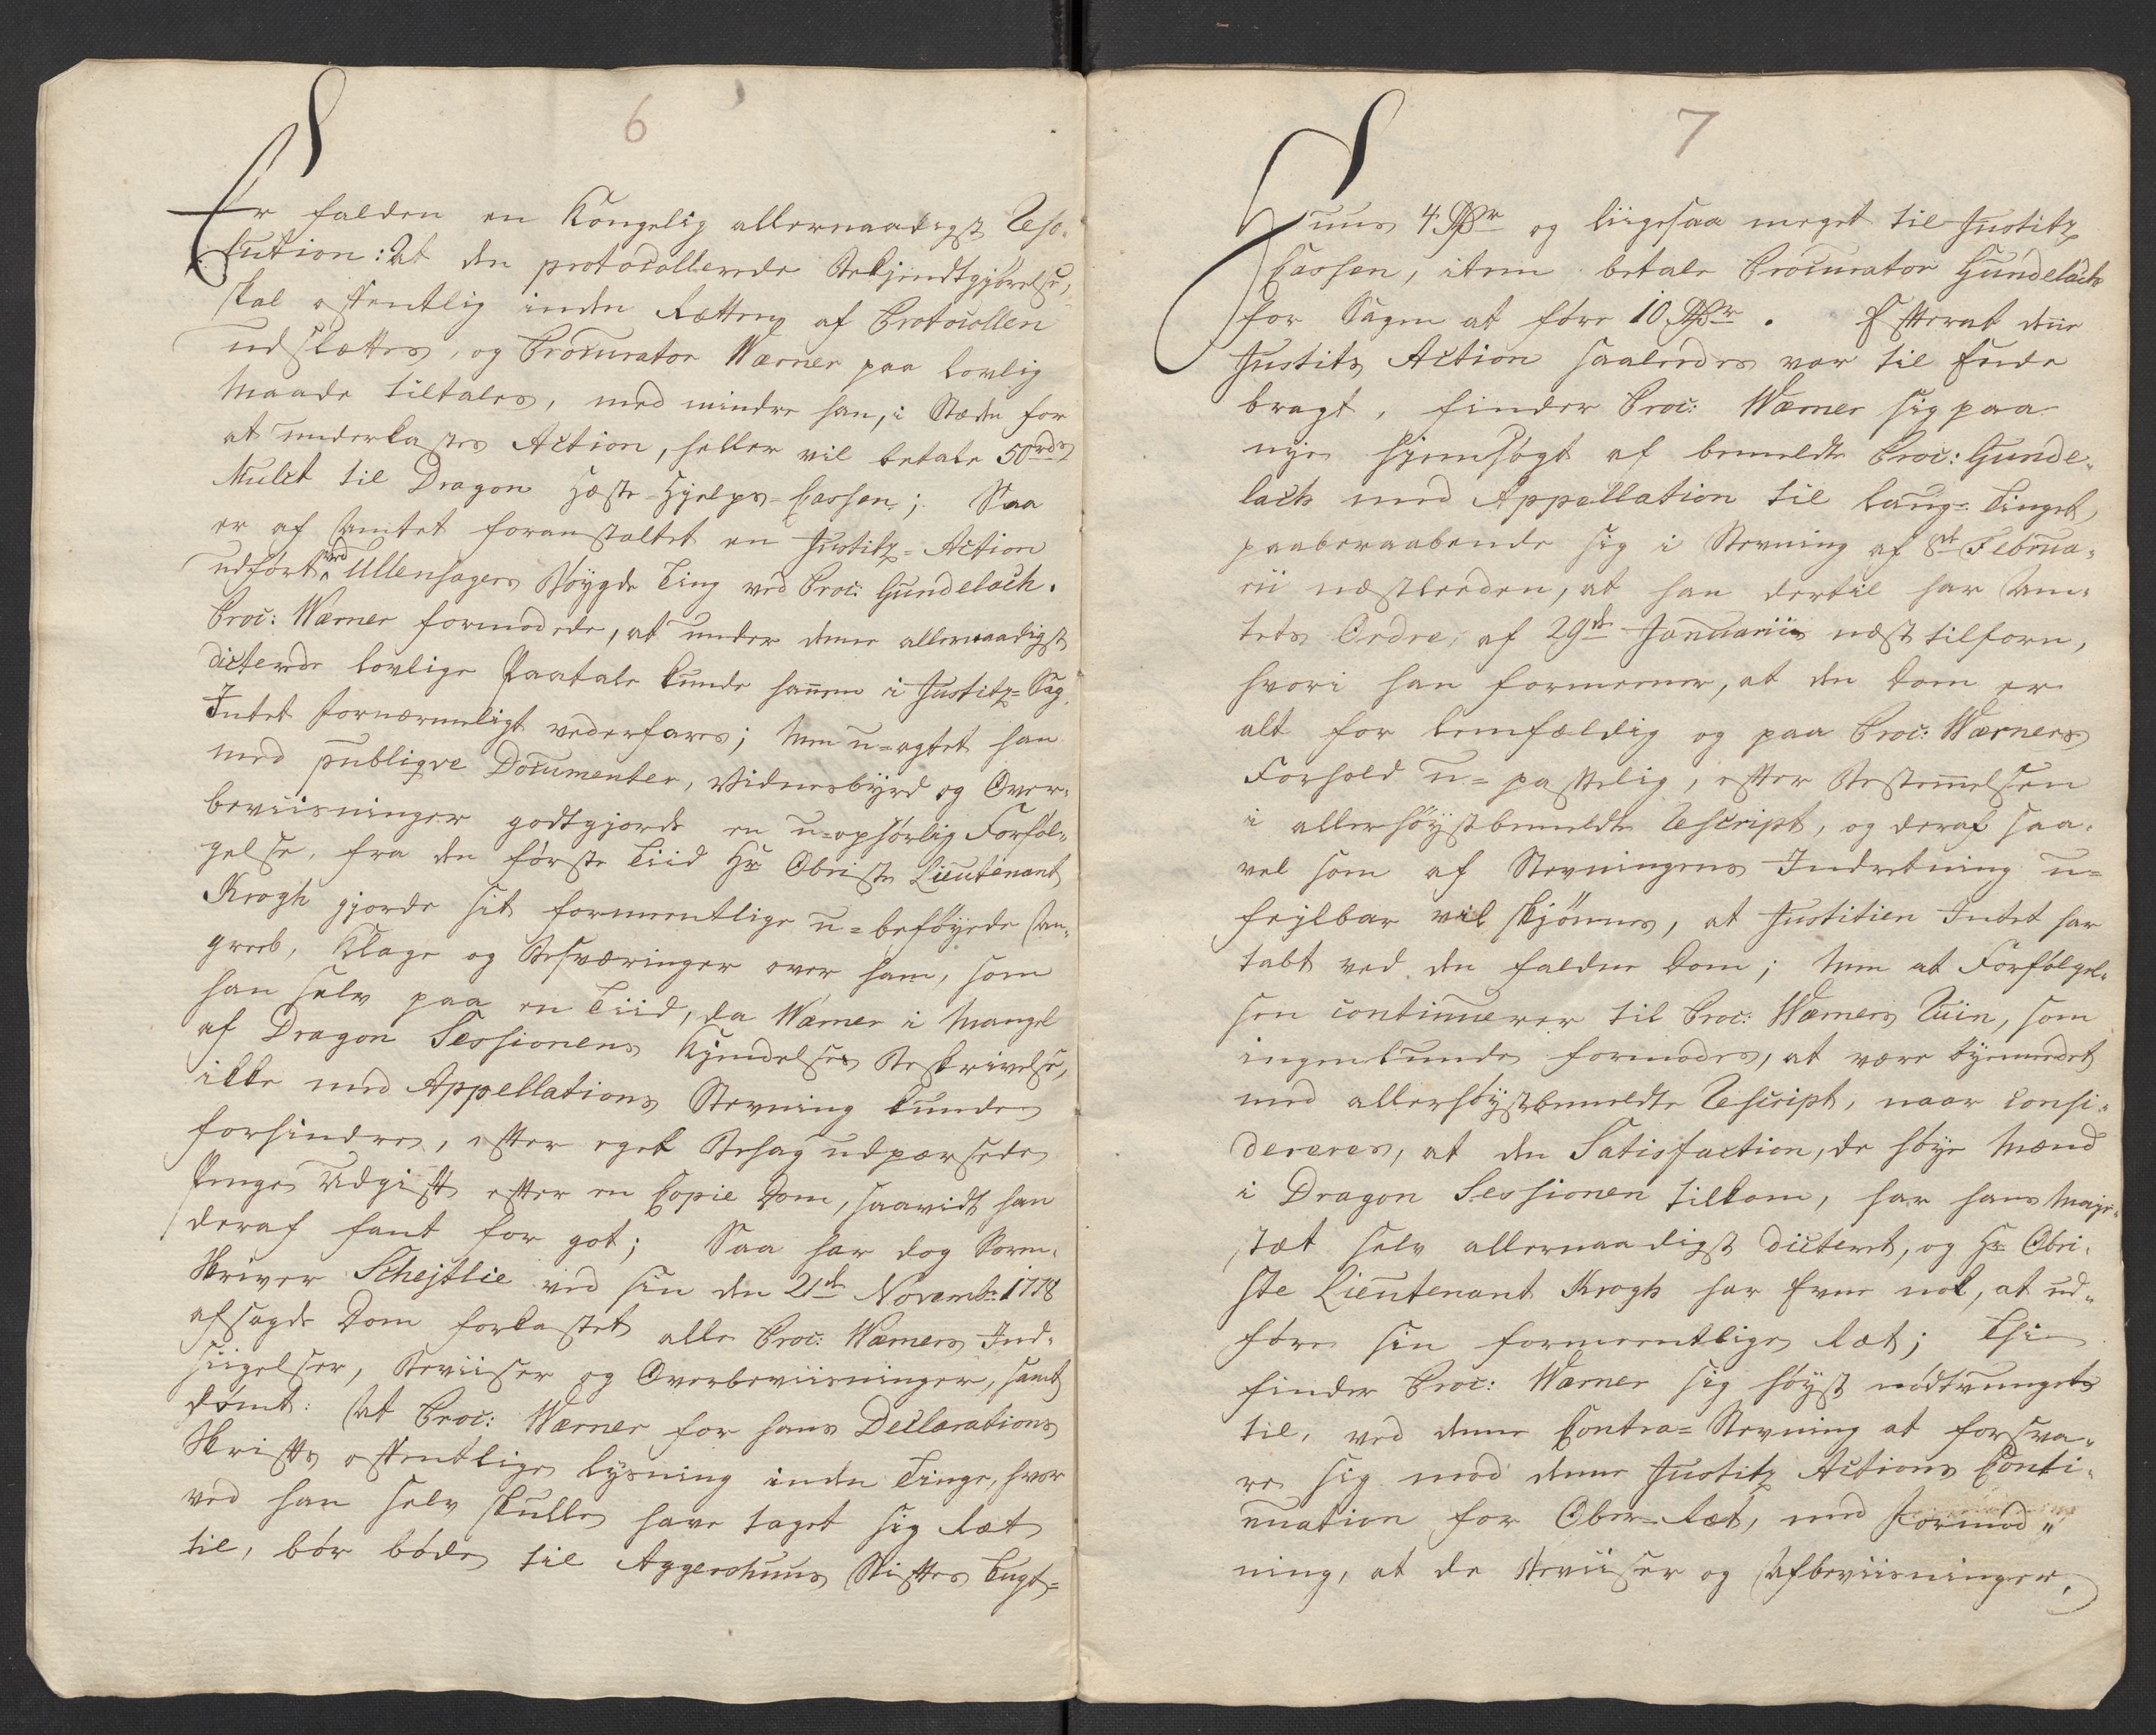 6
Er falden en Kongelig allernaadigst Reso-
lution: At den protocollerede Bekjendtgjörelse,
skal offentlig inden Rætten af Protocollen
udslættes, og Procurator Wærner paa lovlig
Maade tiltales, med mindre han, i Stæden for
at underkastes Action, heller vil betale 50 rdr
Mulct til Dragon Hæste-Hjelps-Cassen; Saa
er af Amtet foranstaltet en Justitz-Action
udfört ved Ullensagers Böygde Ting ved Proc: Gundelach.
Proc: Wærner formodede, at under denne allernaadigst
dicterede lovlige Paatale kunde hannem i Justitz-Sag,
Intet fornærmeligt vederfares; Men u-agtet han
med publiqve Documenter, Vidnesbyrd og Over-
beviisninger godtgjorde en u-ophörlig Forföl-
gelse, fra den förste Tiid Hr Obriste Lieutenant
Krogh gjorde sit formeentlige u-beföyede An-
greeb, Klage og Besværinger over ham, som
han selv paa en Tiid, da Wærner i Mangel
af Dragon Sessionens Kjendelses Beskrivelse,
ikke med Appellations Stevning kunde
forhindre, efter eget Behag udpærsede
Penge Udgift efter en Copie Dom, saavidt han
deraf fant for got; Saa har dog Soren-
skriver Schejtlie ved sin den 21de Novembr 1778
afsagde Dom forkastet alle Proc: Wærners Ind-
siigelser, Beviiser og Overbeviisninger, samt
dömt: At Proc: Wærner for hans Declarations
Skrifts offentlige Lysning inden Tinge, hvor
ved han selv skulle have taget sig Ræt
til, bör böde til Aggershuus Stiftes Tugt-
7
Huus 4 Rdr og liigesaa meget til Justitz
Cassen, item betale Procurator Gundelach
for Sagen at före 10 Rdr. Efterat denne
Justits Action saaledes var til Ende
bragt, finder Proc: Wærner sig paa
nye hjemsögt af bemeldte Proc: Gunde-
lach med Appellation til Laug-Tinget,
paaberaabende sig i Stevning af 8de Februa-
rii næstleeden, at han dertil har Am-
tets Ordre, af 29de Januarii næst tilforn,
hvori han formeener, at den Dom er
alt for lemfældig og paa Proc: Wærners
Forhold u-passelig, efter Bestemmelsen
i allerhöystbemeldte Rescript, og deraf saa-
vel som af Stevningens Indretning u-
fejlbar vil skjönnes, at Justitien Intet har
tabt ved den faldne Dom; Men at Forfölgel-
sen continuerer til Proc: Wærners Ruin, som
ingenlunde formodes, at være øyemeedet
med allerhöystbemeldte Rescript, naar consi-
dereres, at den Satisfaction, de höye Mænd
i Dragon Sessionen tilkom, har hans Maje-
stæt selv allernaadigst dicteret, og Hr Obri-
ste Lieutenant Krogh har Evne nok, at ud-
före sin formeentlige Ræt; Thi
finder Proc: Wærner sig höyst nödtvunget
til, ved denne Contra-Stevning at forsva-
re sig mod denne Justitz Actions Conti-
nuation for Ober-Ræt, med Formod-
ning, at de Beviiser og Afbeviisninger,